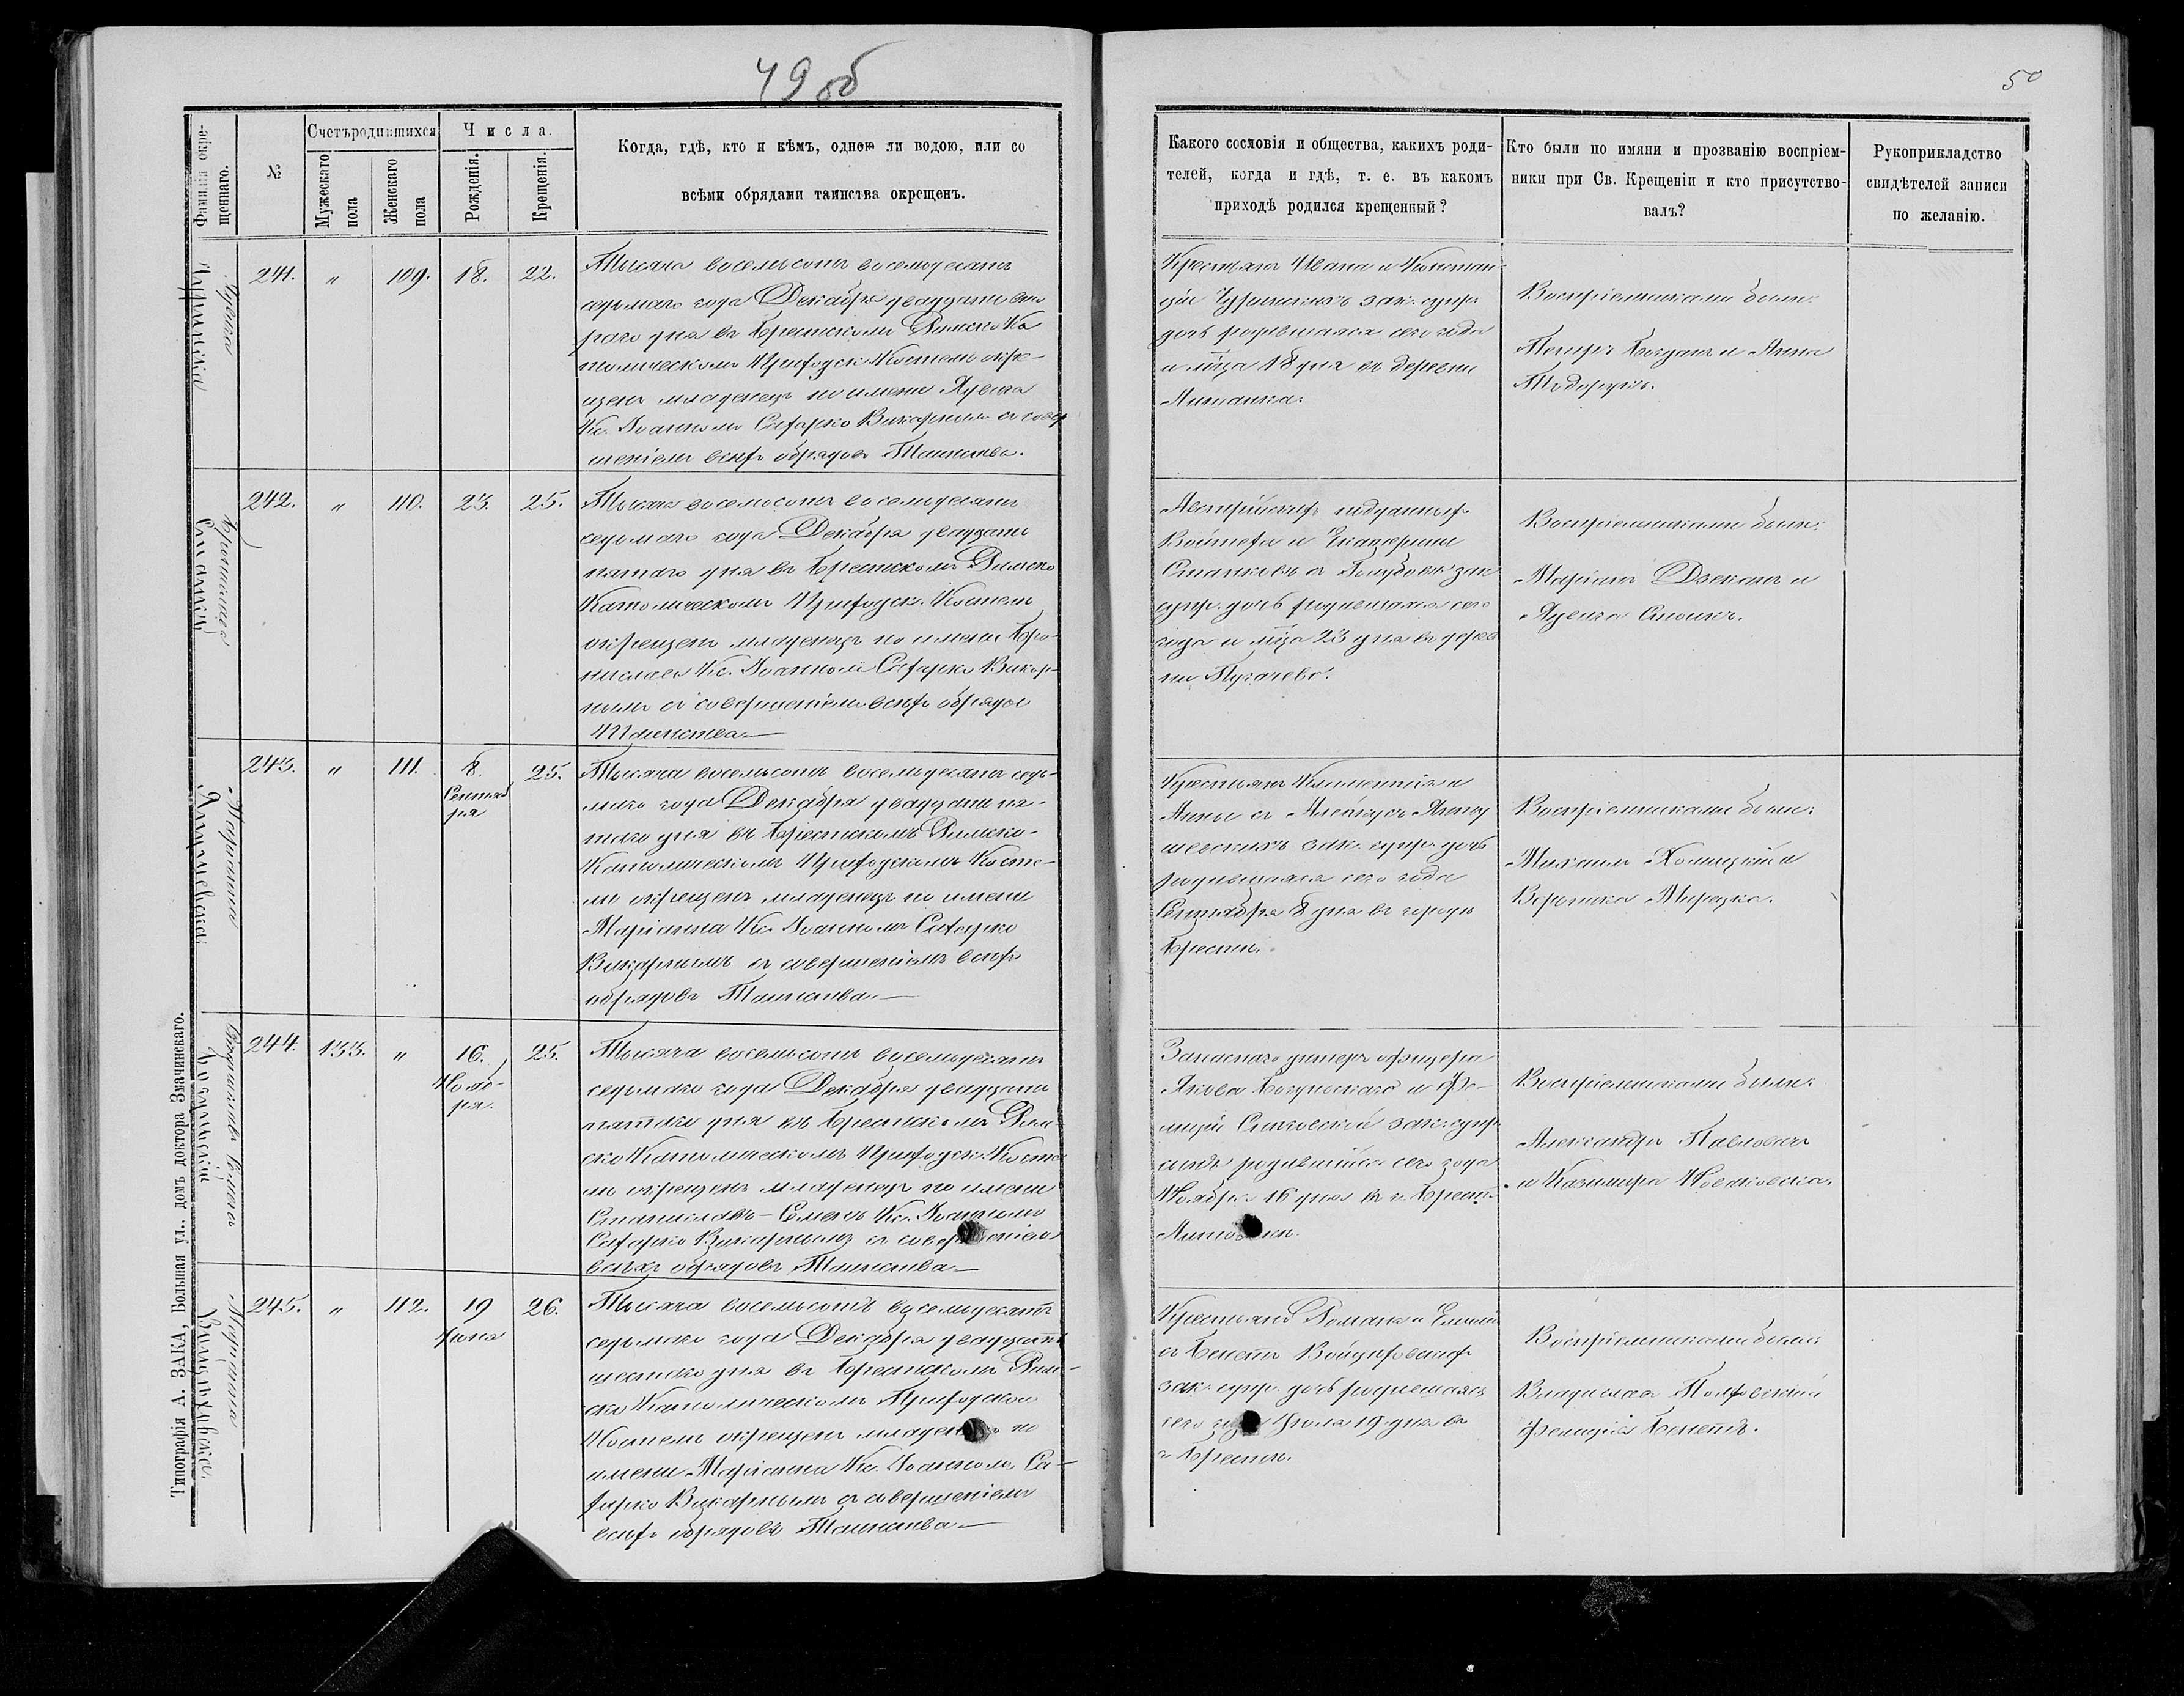 49 об
50
Фамилія окре-
щеннаго.
№
Счетъ родившихся
Мужескаго
пола
Женскаго
пола
Числа.
Рожденія.
Крещенія.
Когда, гдѣ, кто и кѣмъ, одною ли водою, или со
всѣми обрядами таинства окрещенъ.
Какого сословія и общества, какихъ роди-
телей, когда и гдѣ, т. е. въ какомъ
приходѣ родился крещенный?
Кто были по имяни и прозванію воспріем-
ники при Св. Крещеніи и кто присутство-
валъ?
Рукоприкладство
свидѣтелей записи
по желанію.
241.
"
109.
18.
22.
Тысяча восемьсотъ восемьдесятъ
седьмаго года Декабря двадцать вто
раго дня въ Брестскомъ Римско Ка
толическомъ Приходск. Костелѣ окре-
щенъ младенецъ по имени Ядвига
Кс. Іоанномъ Сахарко Викарнымъ съ совер
шеніемъ всѣхъ обрядовъ Таинства.
Крестьянъ Ивана и Констан
ціи зак. супр.
дочь родившаяся сего года
и мѣца 18 дня въ деревни
Воспріемниками были:
Петръ Богданъ и Анна
242.
"
110.
23.
25.
Бронислава
Тысяча восемьсотъ восемьдесятъ
седьмаго года Декабря двадцать
пятаго дня въ Брестскомъ Римско
Католическомъ Приходск. Костелѣ
окрещенъ младенецъ по имени Бро-
нислава Кс. Іоанномъ Сахарко Викар-
нымъ съ совершеніемъ всѣхъ обрядов
Таинства.—
Австрійскихъ подданныхъ
Войтеха и Екатерины
зак
супр. дочь родившаяся сего
года и мѣца 23 дня въ дерев
ни Пугачево.
Воспріемниками были:
Маріанъ и
Ядвига
243.
"
111.
8.
Сентяб
ря
25.
Маріанна
Тысяча восемьсотъ восемьдесятъ седь-
маго года Декабря двадцать пя-
таго дня въ Брестскомъ Римско-
Католическомъ Приходскомъ Косте-
лѣ окрещенъ младенецъ по имени
Маріанна Кс. Іоанномъ Сахарко
Викарнымъ съ совершеніемъ всѣхъ
обрядовъ Таинства.—
Крестьянъ Климентія и
Анны съ
зак. супр. дочь
родившаяся сего года
Сентября 8 дня въ городѣ
Брестѣ.
Воспріемниками были:
Михаилъ
244.
133.
"
16.
Нояб-
ря.
25.
Станиславъ Семенъ
Тысяча восемьсотъ восемьдесятъ
седьмаго года Декабря двадцать
пятаго дня въ Брестскомъ Рим-
ско Католическомъ Приходск. Косте
лѣ окрещенъ младенецъ по имени
Станиславъ-Семенъ Кс. Іоанномъ
Сахарко Викарнымъ съ совершеніемъ
всѣхъ обрядовъ Таинства.—
Запаснаго унтеръ офицера
Якова и Фе-
лиціи зак. супр.
сынъ родившійся сего года
Ноября 16 дня въ г. Брест-
Литовскѣ.
Воспріемниками были:
Александръ Павловичъ
и Казимира
245.
"
112.
19
Іюля
26.
Маріанна
Тысяча восемьсотъ восемьдесятъ
седьмаго года Декабря двадцать
шестаго дня въ Брестскомъ Рим-
ско Католическомъ Приходском
Костелѣ окрещенъ младенецъ по
имени Маріанна Кс. Іоанномъ Са-
харко Викарнымъ съ совершеніемъ
всѣхъ обрядовъ Таинства.—
Крестьянъ Романа и Емиліи
зак. супр. дочь родившаяся
сего года Іюля 19 дня въ
г. Брестѣ.
Воспріемниками были:
Владиславъ
Типографія А. ЗАКА, Большая ул., домъ доктора Змачинскаго.